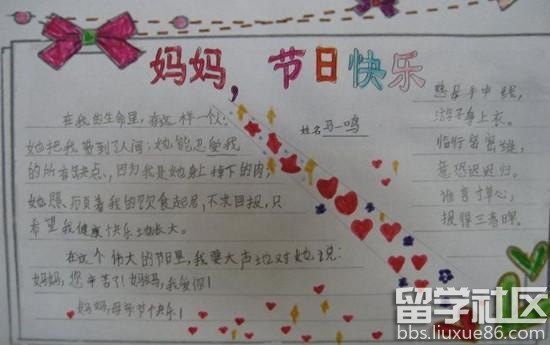 妈妈，节日快乐
姓名 马一鸣
在我的生命里，有这样一个人：
她把我带到了人间；她能忍受我
的所有缺点，因为我是她身上掉下的肉；
她照历着我的饮食起居，不求回报，只
希望我健康快乐地长大。
在这个伟大的节日里，我要大声地对她说：
妈妈，您辛苦了！妈妈，我爱你！
妈妈，母亲节快乐！
慈母手中线，
游子身上衣。
临行密密缝，
意恐迟迟归。
谁言寸草心，
报得三春晖。
留学社区
bbs.liuxue86.com